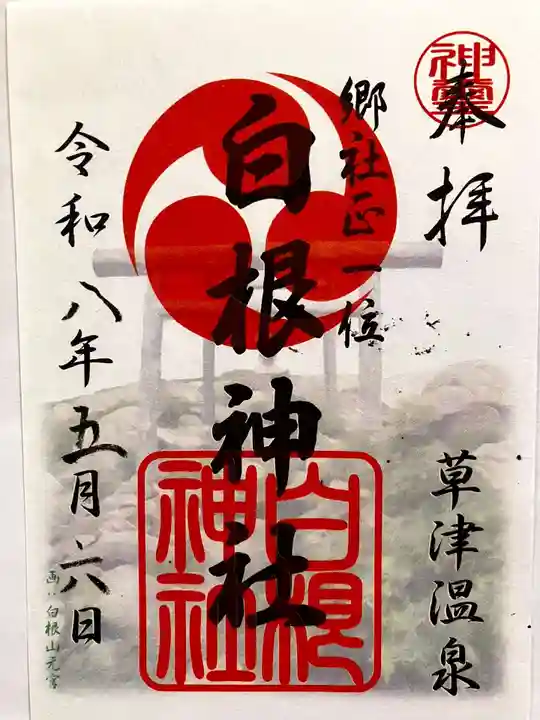 奉拝
神璽
草津温泉
郷社正一位
白根神社
白根
神社
令和八年五月六日
画：白根山元宮